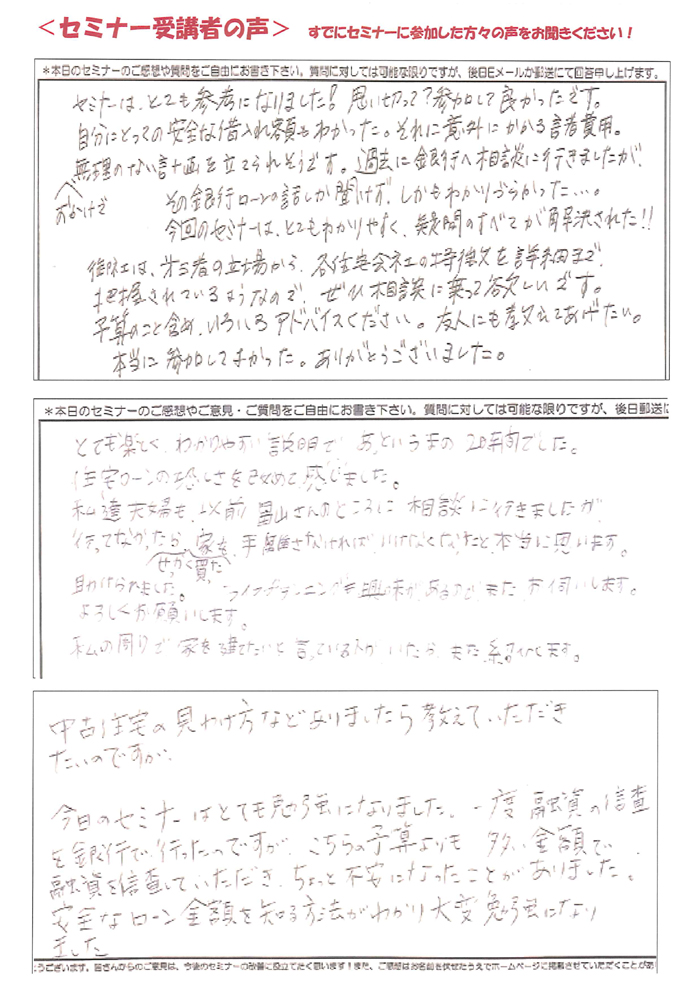 ＜セミナー受講者の声＞　すでにセミナーに参加した方々の声をお聞きください！
＊本日のセミナーのご感想や質問をご自由にお書き下さい。質問に対しては可能な限りですが、後日Eメールか郵送にて回答申し上げます。
セミナーは、とても参考になりました！思い切って？参加して良かったです。
自分にとっての安全な借入れ額もわかった。それに意外にかかる諸費用。
無理のない計画を立てられそうです。過去に銀行へ相談に行きましたが、
おかげで
その銀行ローンの話しか聞けず、しかもわかりづらかった…。
今回のセミナーは、とてもわかりやすく、疑問のすべてが解決された！！
御社は、第三者の立場から、各住宅会社の特徴を詳細まで、
把握されているようなので、ぜひ相談に乗って欲しいです。
予算のこと含め、いろいろアドバイスください。友人にも教えてあげたい。
本当に参加してよかった。ありがとうございました。
＊本日のセミナーのご感想やご意見・ご質問をご自由にお書き下さい。質問に対しては可能な限りですが、後日郵送に
とても楽しく、わかりやすい説明で、あっというまの2時間でした。
住宅ローンの恐しさを改めて感じました。
私達夫婦も、以前畠山さんのところに相談に行きましたが、
行ってなかったら、家を、手離さなければいけなくなったと本当に思います。
せっかく買った
助けられました。ライフプランニングも興味があるので、また、お伺いします。
よろしくお願いします。
私の周りで家を建てたいと言っている人が、いたら、また、紹介します。
中古住宅の見わけ方などありましたら教えていただき
たいのですが、
今日のセミナーはとても勉強になりました。一度融資の審査
を銀行で行ったのですが、こちらの予算よりも多い金額で、
融資を審査していただき、ちょっと不安になったことがありました。
安全なローン金額を知る方法がわかり大変勉強になり
ました
うございます。皆さんからのご意見は、今後のセミナーの改善に役立てたく思います！また、ご感想はお名前を伏せたうえでホームページに掲載させていただくことがあ